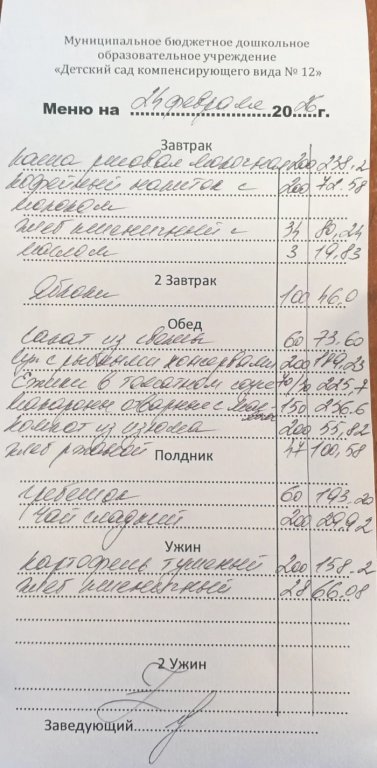 Муниципальное бюджетное дошкольное
образовательное учреждение
«Детский сад компенсирующего вида № 12»
Меню на 24 февраля 2026 г.
Завтрак
каша рисовая молочная 200 238.2
кофейный напиток с 200 72.58
молоком
хлеб пшеничный с 34 80,24
маслом 3 19,83
2 Завтрак
Яблоки 100 46.0
Обед
салат из свеклы 60 73.60
суп с рыбными консервами 200
Ёжики в томатном соусе
макароны отварные с мас- 150 236.6
компот из изюма 200 55.82
хлеб ржаной 47 100,58
Полдник
гребешок 60 193.20
Чай сладкий 200 29,92
Ужин
картофель тушеный 200 158.2
хлеб пшеничный 28 66.08
2 Ужин
Заведующий